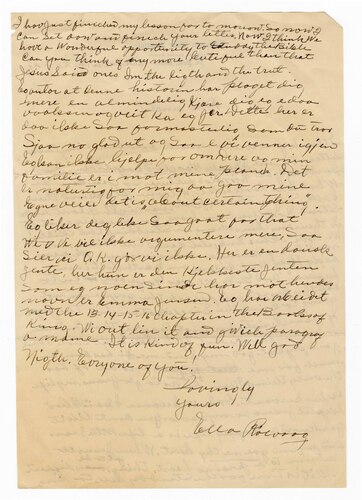 I have just finished my lesson for to morrow. So now I
can set down and finish your letter. Now I think We
have a Wonderful oppertunity to study the Bible
Can you think of any more beutiful then that
Jesus said ones Im the ligth and the trut.
at denne historien har plaget dig
mere en almindelig kjære dig og edaa
ka eg før Dette her er
daa ikke Saa formastelig Som du tror
Sjaa no glad ut og Saa e vi venner igjen
Eg kan ikke hjelpe for om Ture og min
familie er i mot mine planer. Det
er naturlig for mig aa gaa mine
Egne veier det is about certain thing.
Eg liker deg like Saa godt for that
Will ikke argumentere mere, Saa
Sier vi O.K. gør vi ikke. Her er en dansk
jente, her hun er den Kjekkeste Jenten
Som eg noen Sinde har møt hendes
navn er Emma Jensen. Eg har
med the 13-14-15-16 Chapter in the Books of
Kings. We out lin it and giveth paragraf
a name. It is kind of fun. Well god
Nigth. Everyone of you.
Lovingly
Yours
Ella